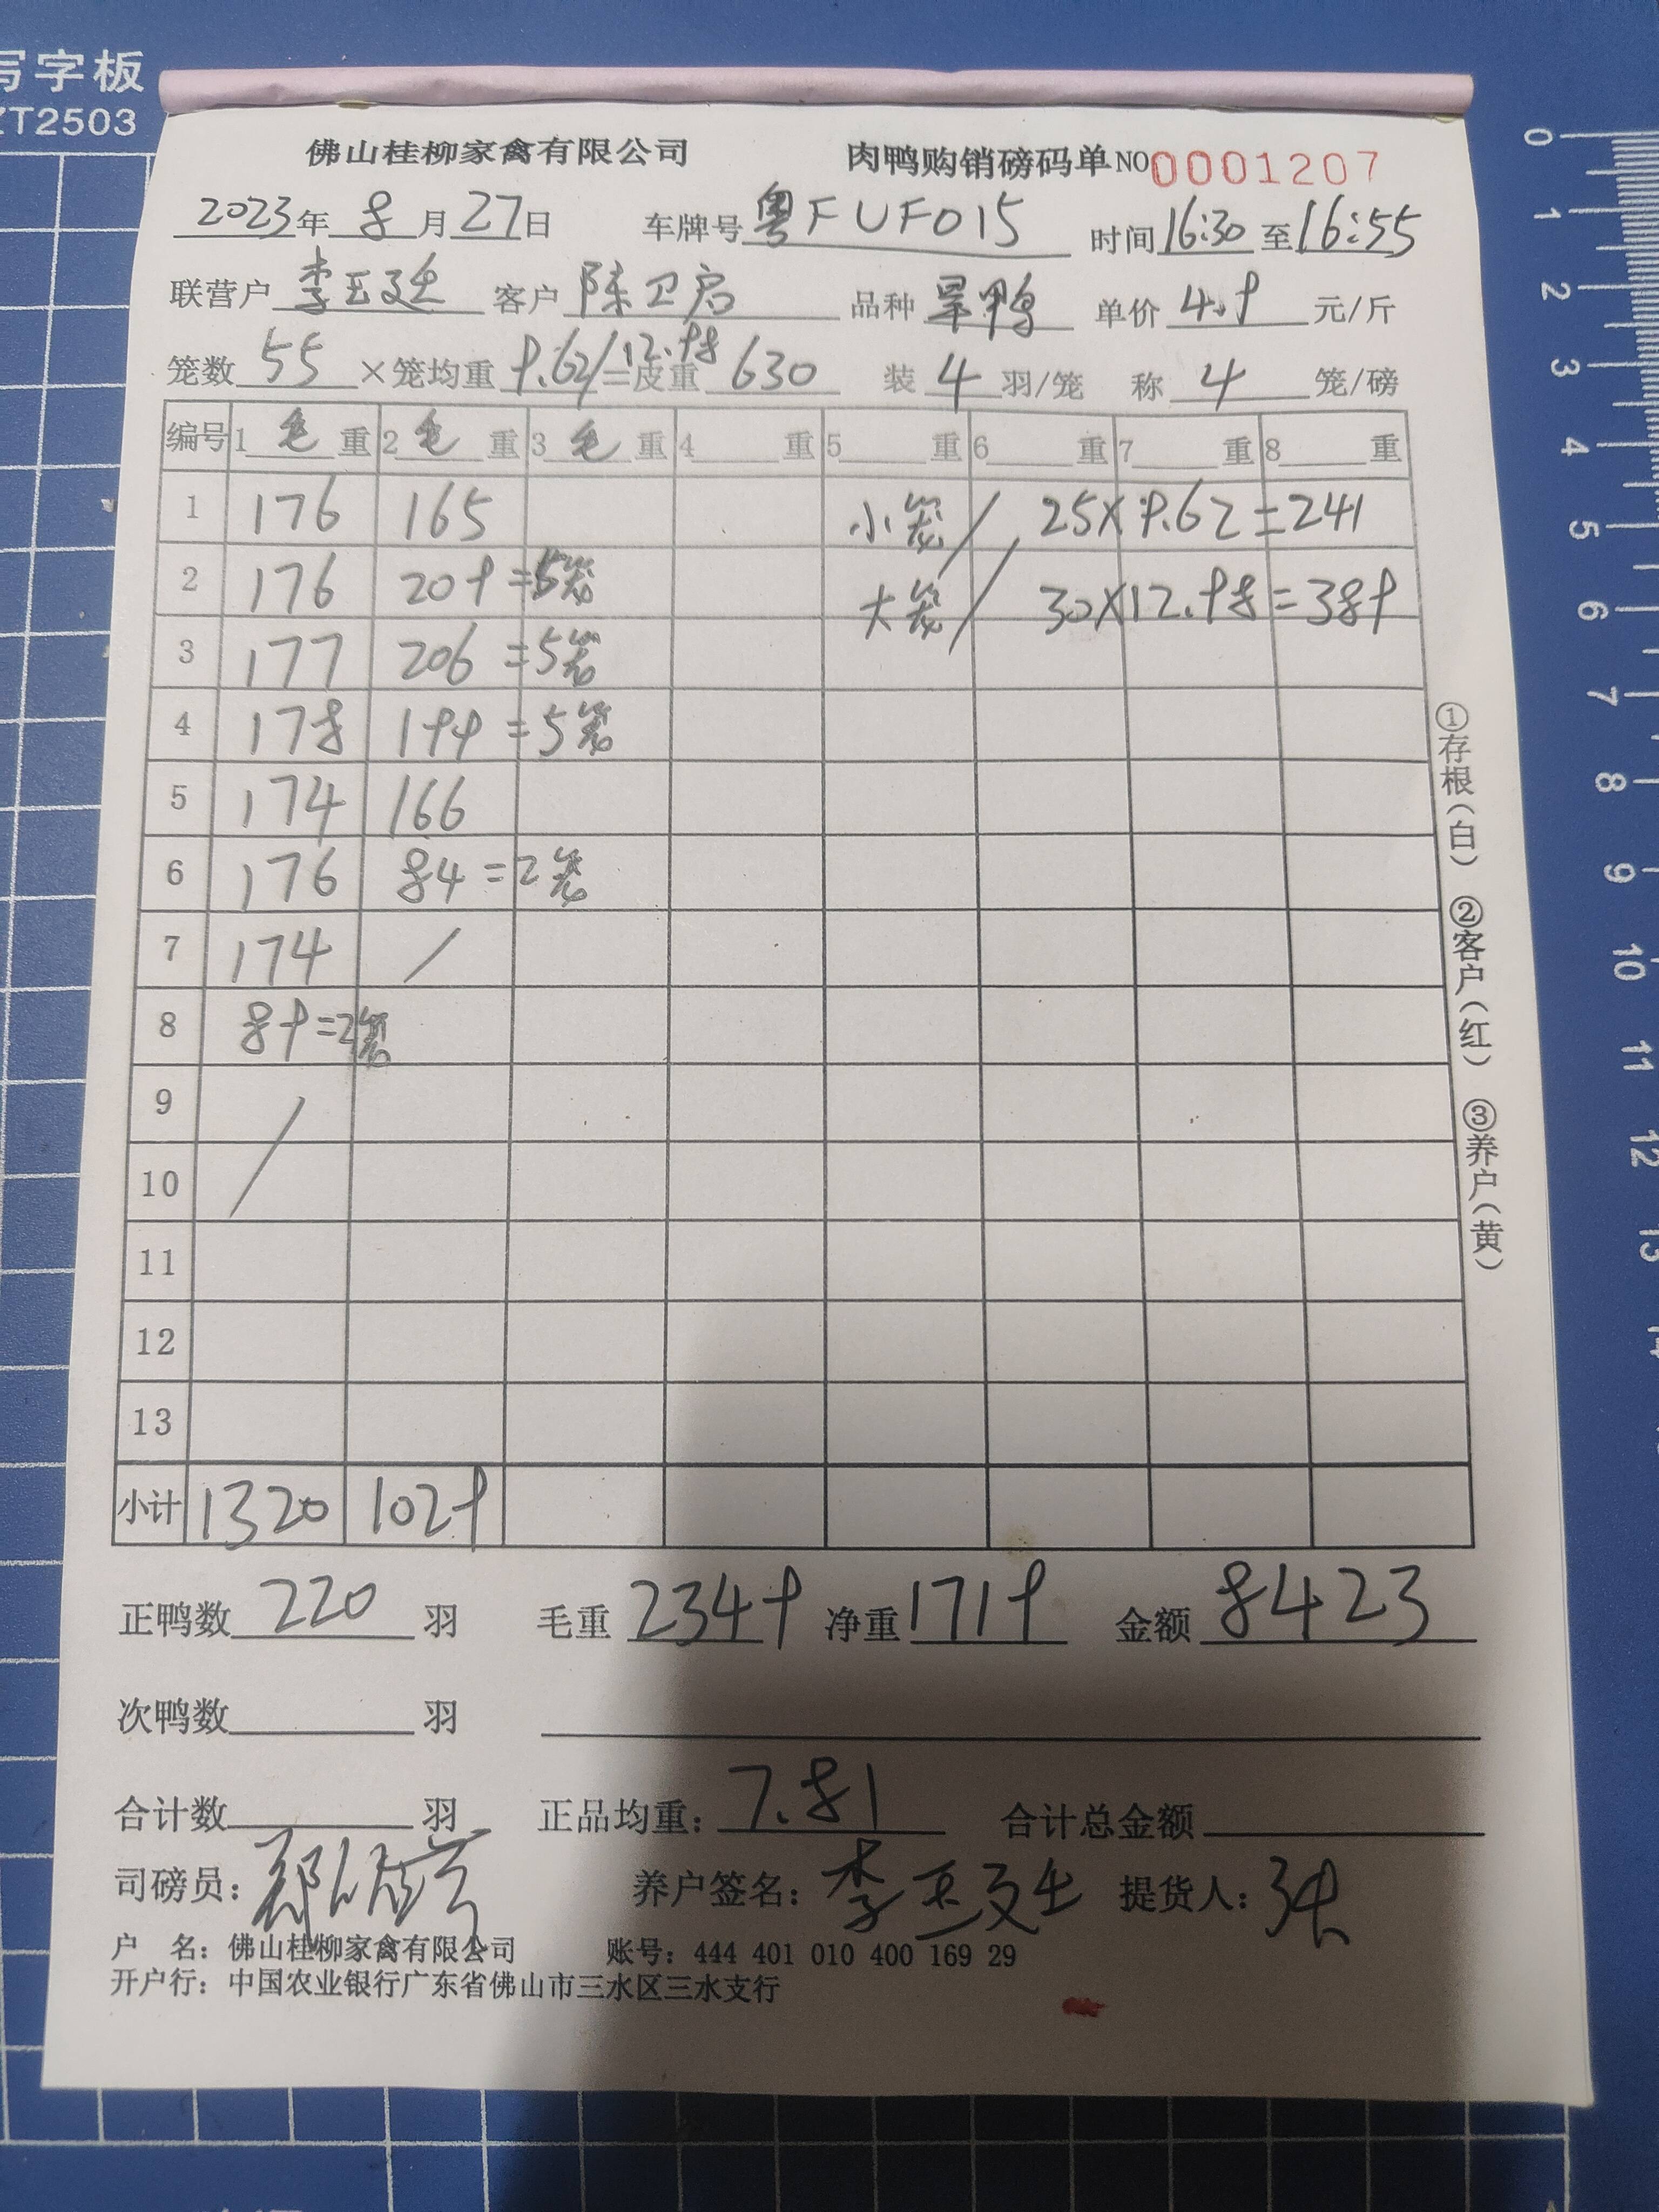 写字板
ZT2503
佛山桂柳家禽有限公司 肉鸭购销磅码单 NO 0001207
2023年 8月27日 车牌号 粤FUF015 时间 16:30 至 16:55
联营户 李玉廷 客户 陈卫启 品种 旱鸭 单价 4.9 元/斤
笼数 55 ×笼均重 9.62/12.98 =皮重 630 装 4 羽/笼 称 4 笼/磅
编号 1 毛 重 2 毛 重 3 毛 重 4 重 5 重 6 重 7 重 8 重
1 176 165 小笼/ 25×9.62=241
2 176 209=5笼 大笼/ 30×12.98=389
3 177 206=5笼
4 178 199=5笼
5 174 166
6 176 84=2笼
7 174 /
8 89=2笼
9 /
10
11
12
13
小计 1320 1029
正鸭数 220 羽 毛重 2349 净重 1719 金额 8423
次鸭数 羽
合计数 羽 正品均重: 7.81 合计总金额
司磅员: 养户签名: 李玉廷 提货人: 张
户 名: 佛山桂柳家禽有限公司 账号: 444 401 010 400 169 29
开户行: 中国农业银行广东省佛山市三水区三水支行
①存根(白) ②客户(红) ③养户(黄)
0
1
2
3
4
5
6
7
8
9
10
11
12
13
14